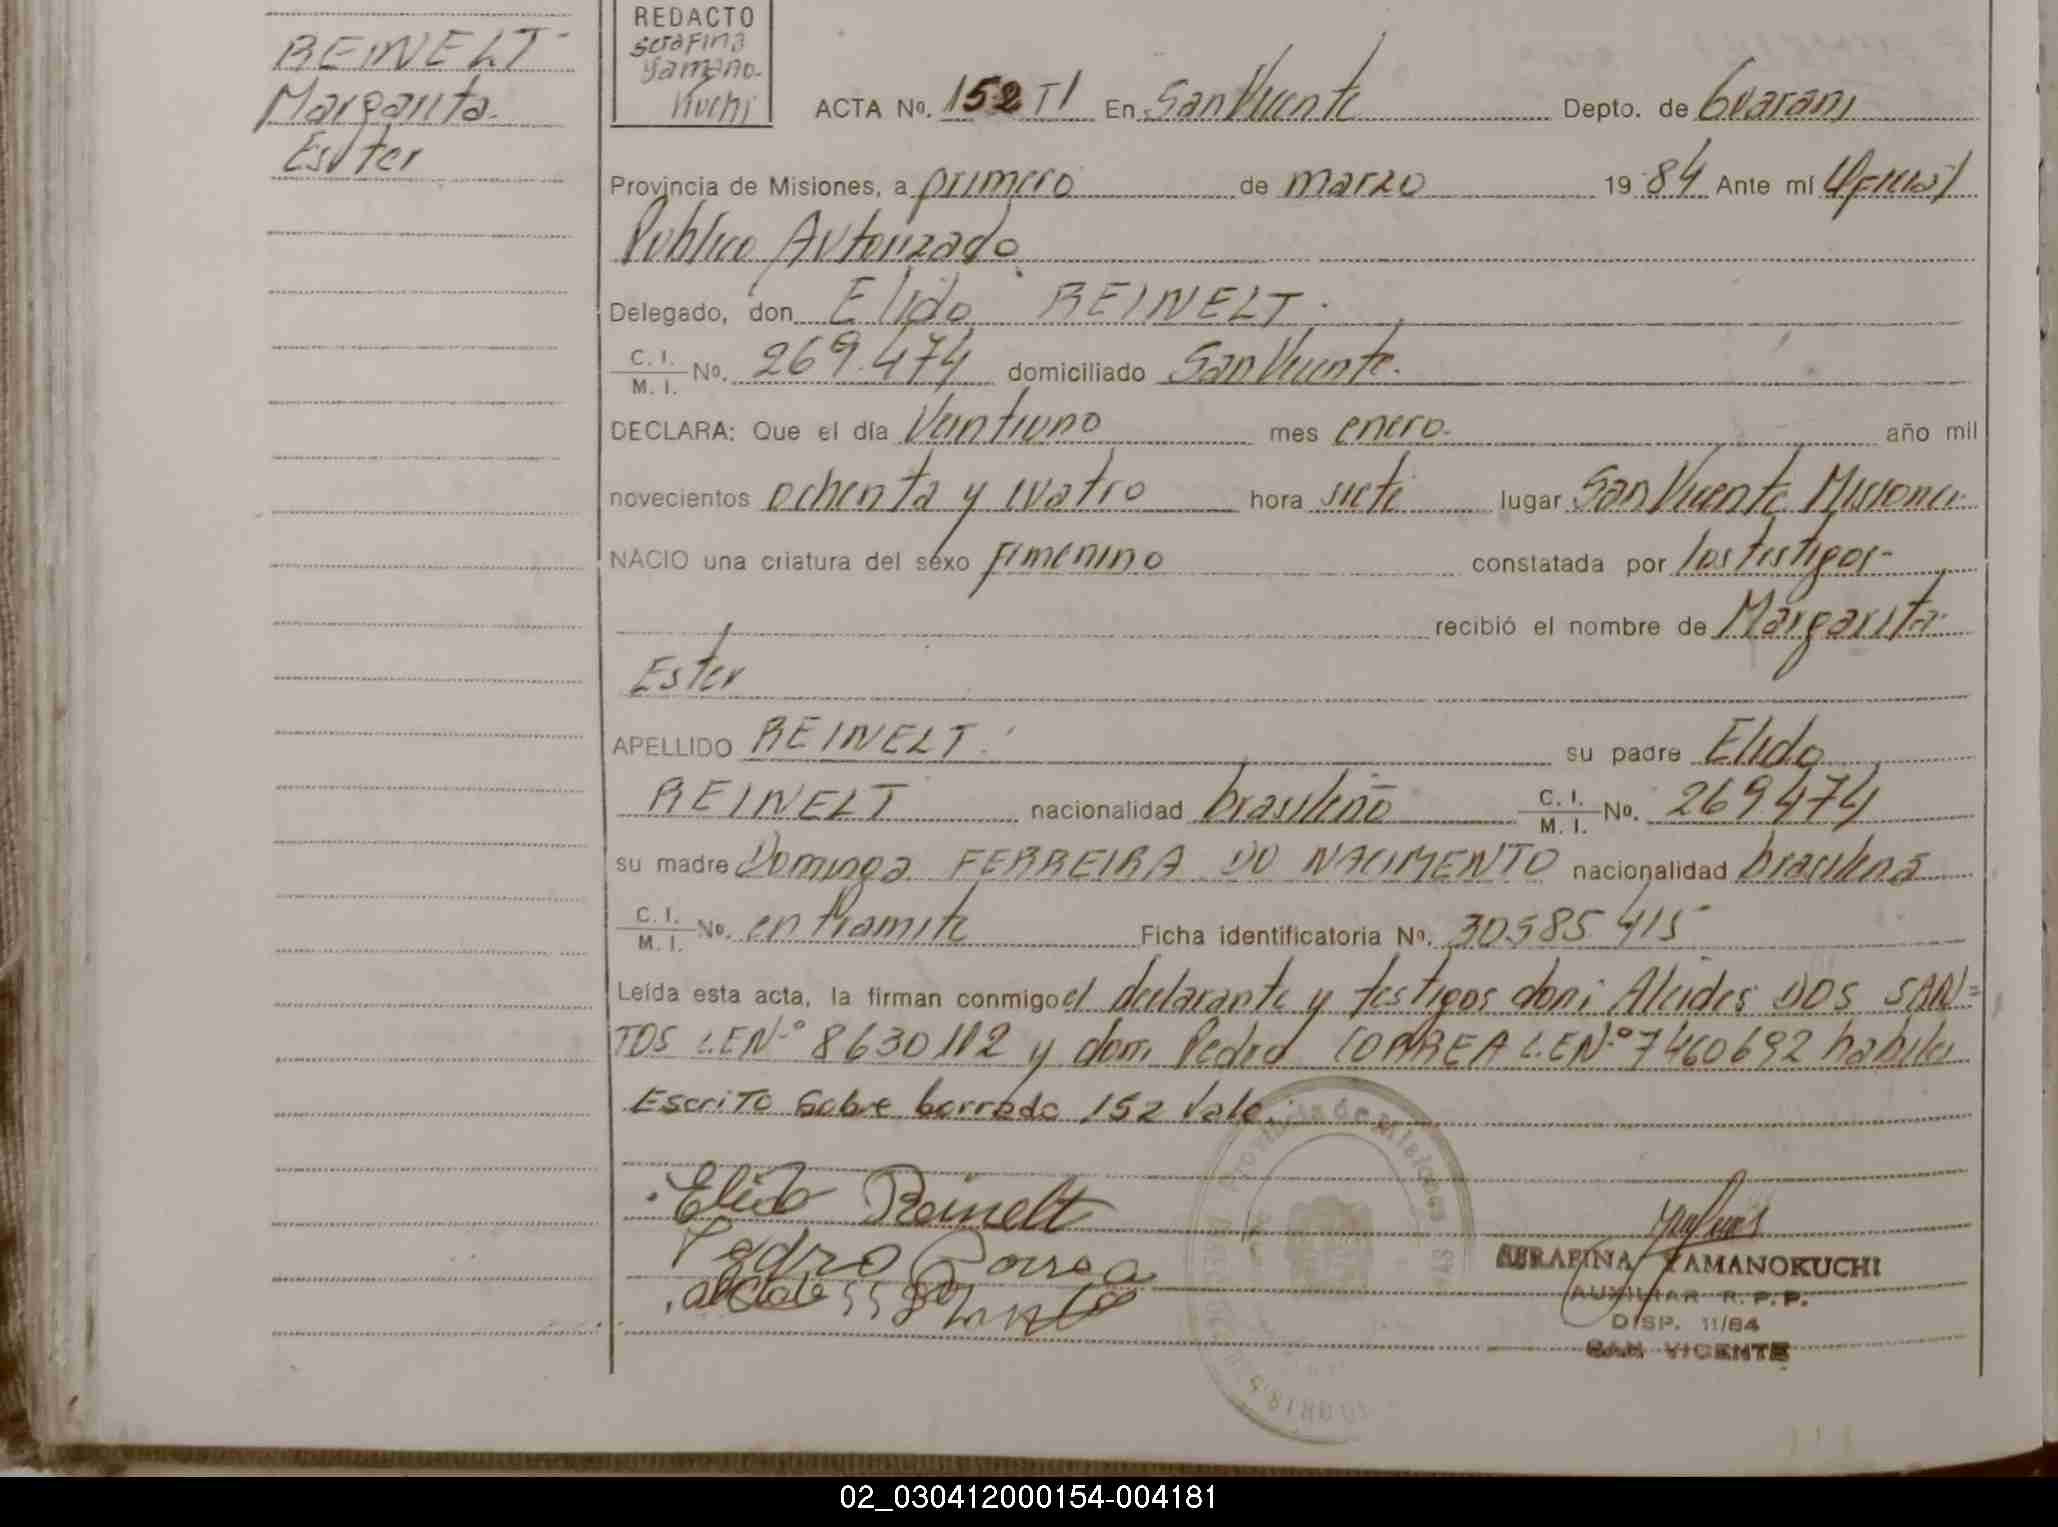 REINELT
Margarita
Ester
REDACTO
Serafina
Yamano-
Kuchi
ACTA Nº. 152 T1 En San Vicente Depto. de Guaraní
Provincia de Misiones, a primero de marzo 1984 Ante mí Oficial
Público Autorizado
Delegado, don Elido REINELT.
C. I. / M. I. Nº. 269.474 domiciliado San Vicente.
DECLARA: Que el día Veintiuno mes enero. año mil
novecientos ochenta y cuatro hora siete lugar San Vicente Misiones
NACIO una criatura del sexo femenino constatada por los testigos-
recibió el nombre de Margarita
Ester
APELLIDO REINELT. su padre Elido
REINELT nacionalidad brasileño C. I. / M. I. Nº. 269474
su madre Dominga FERREIRA DO NACIMENTO nacionalidad brasilena
C. I. / M. I. Nº. en tramite Ficha identificatoria Nº. 30585415
Leída esta acta, la firman conmigo el declarante y testigos don: Alcides DOS SAN=
TOS L.E Nº 8630112 y don: Pedro CORREA L.E Nº 7460692 habiles
Escrito sobre borrado 152 Vale.
Elido Reinelt
Pedro Correa
SERAFINA YAMANOKUCHI
AUXILIAR R. P. P.
DISP. 11/84
SAN VICENTE
Provincia de Misiones
02_030412000154-004181